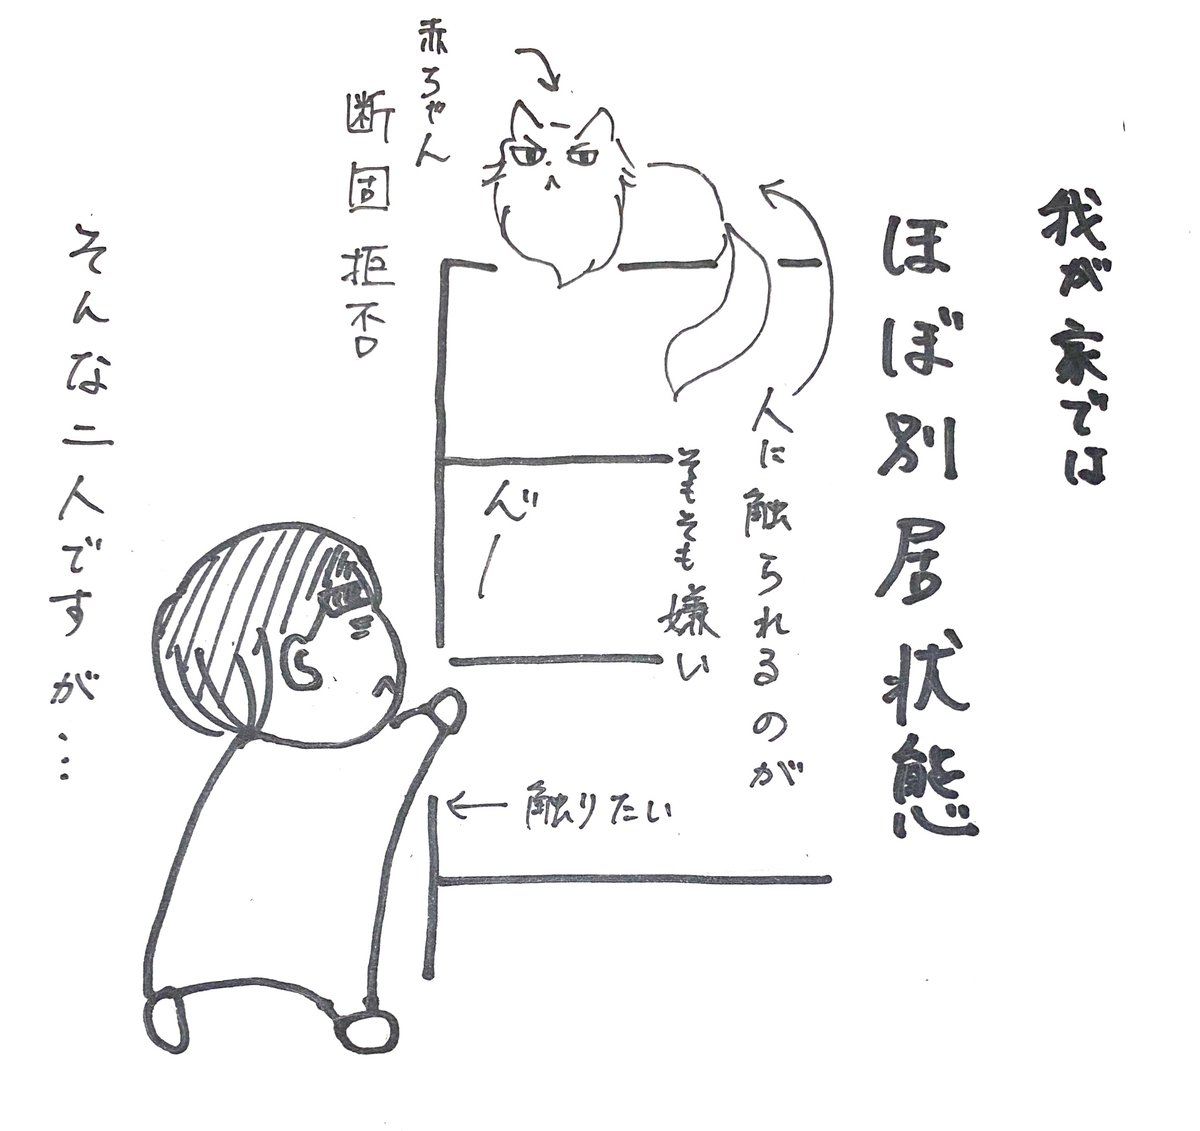 我が家では
ほぼ別居状態
人に触られるのが
そもそも嫌い
赤ちゃん
断固拒否
んー
触りたい
そんな二人ですが…